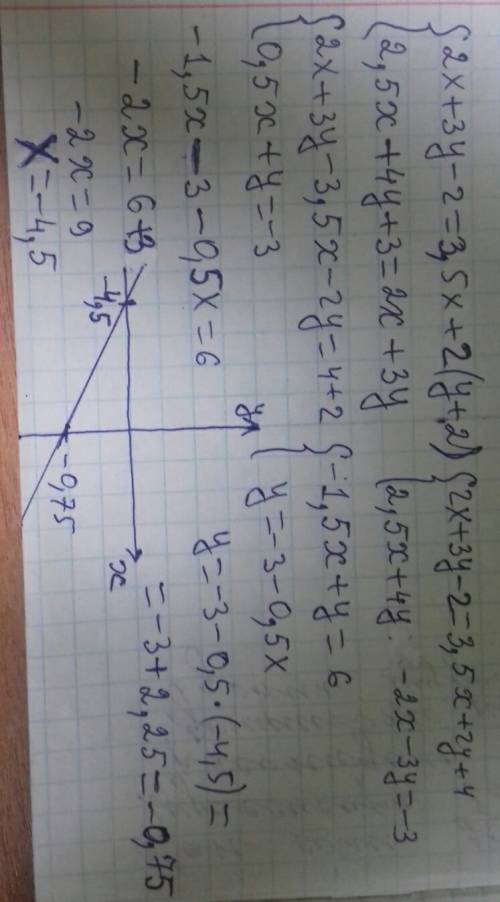 {2x+3y-2=3,5x+2(y+2) {2x+3y-2=3,5x+2y+4
{2,5x+4y+3=2x+3y {2,5x+4y-2x-3y=-3
{2x+3y-3,5x-2y=4+2 {-1,5x+y=6
{0,5x+y=-3 {y=-3-0,5x
-1,5x-3-0,5x=6
y=-3-0,5·(-4,5)=
=-3+2,25=-0,75
-2x=6+3
-2x=9
x=-4,5
y
x
-4,5
-0,75